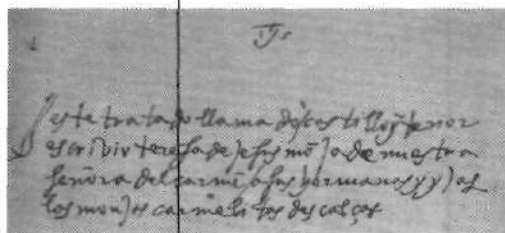 este tratado llamado castillo ynterior
escrivio teresa de jesus mōja de nuestra
señora del carmē a sus hermanas y yjas
las monjas carmelitas descalças